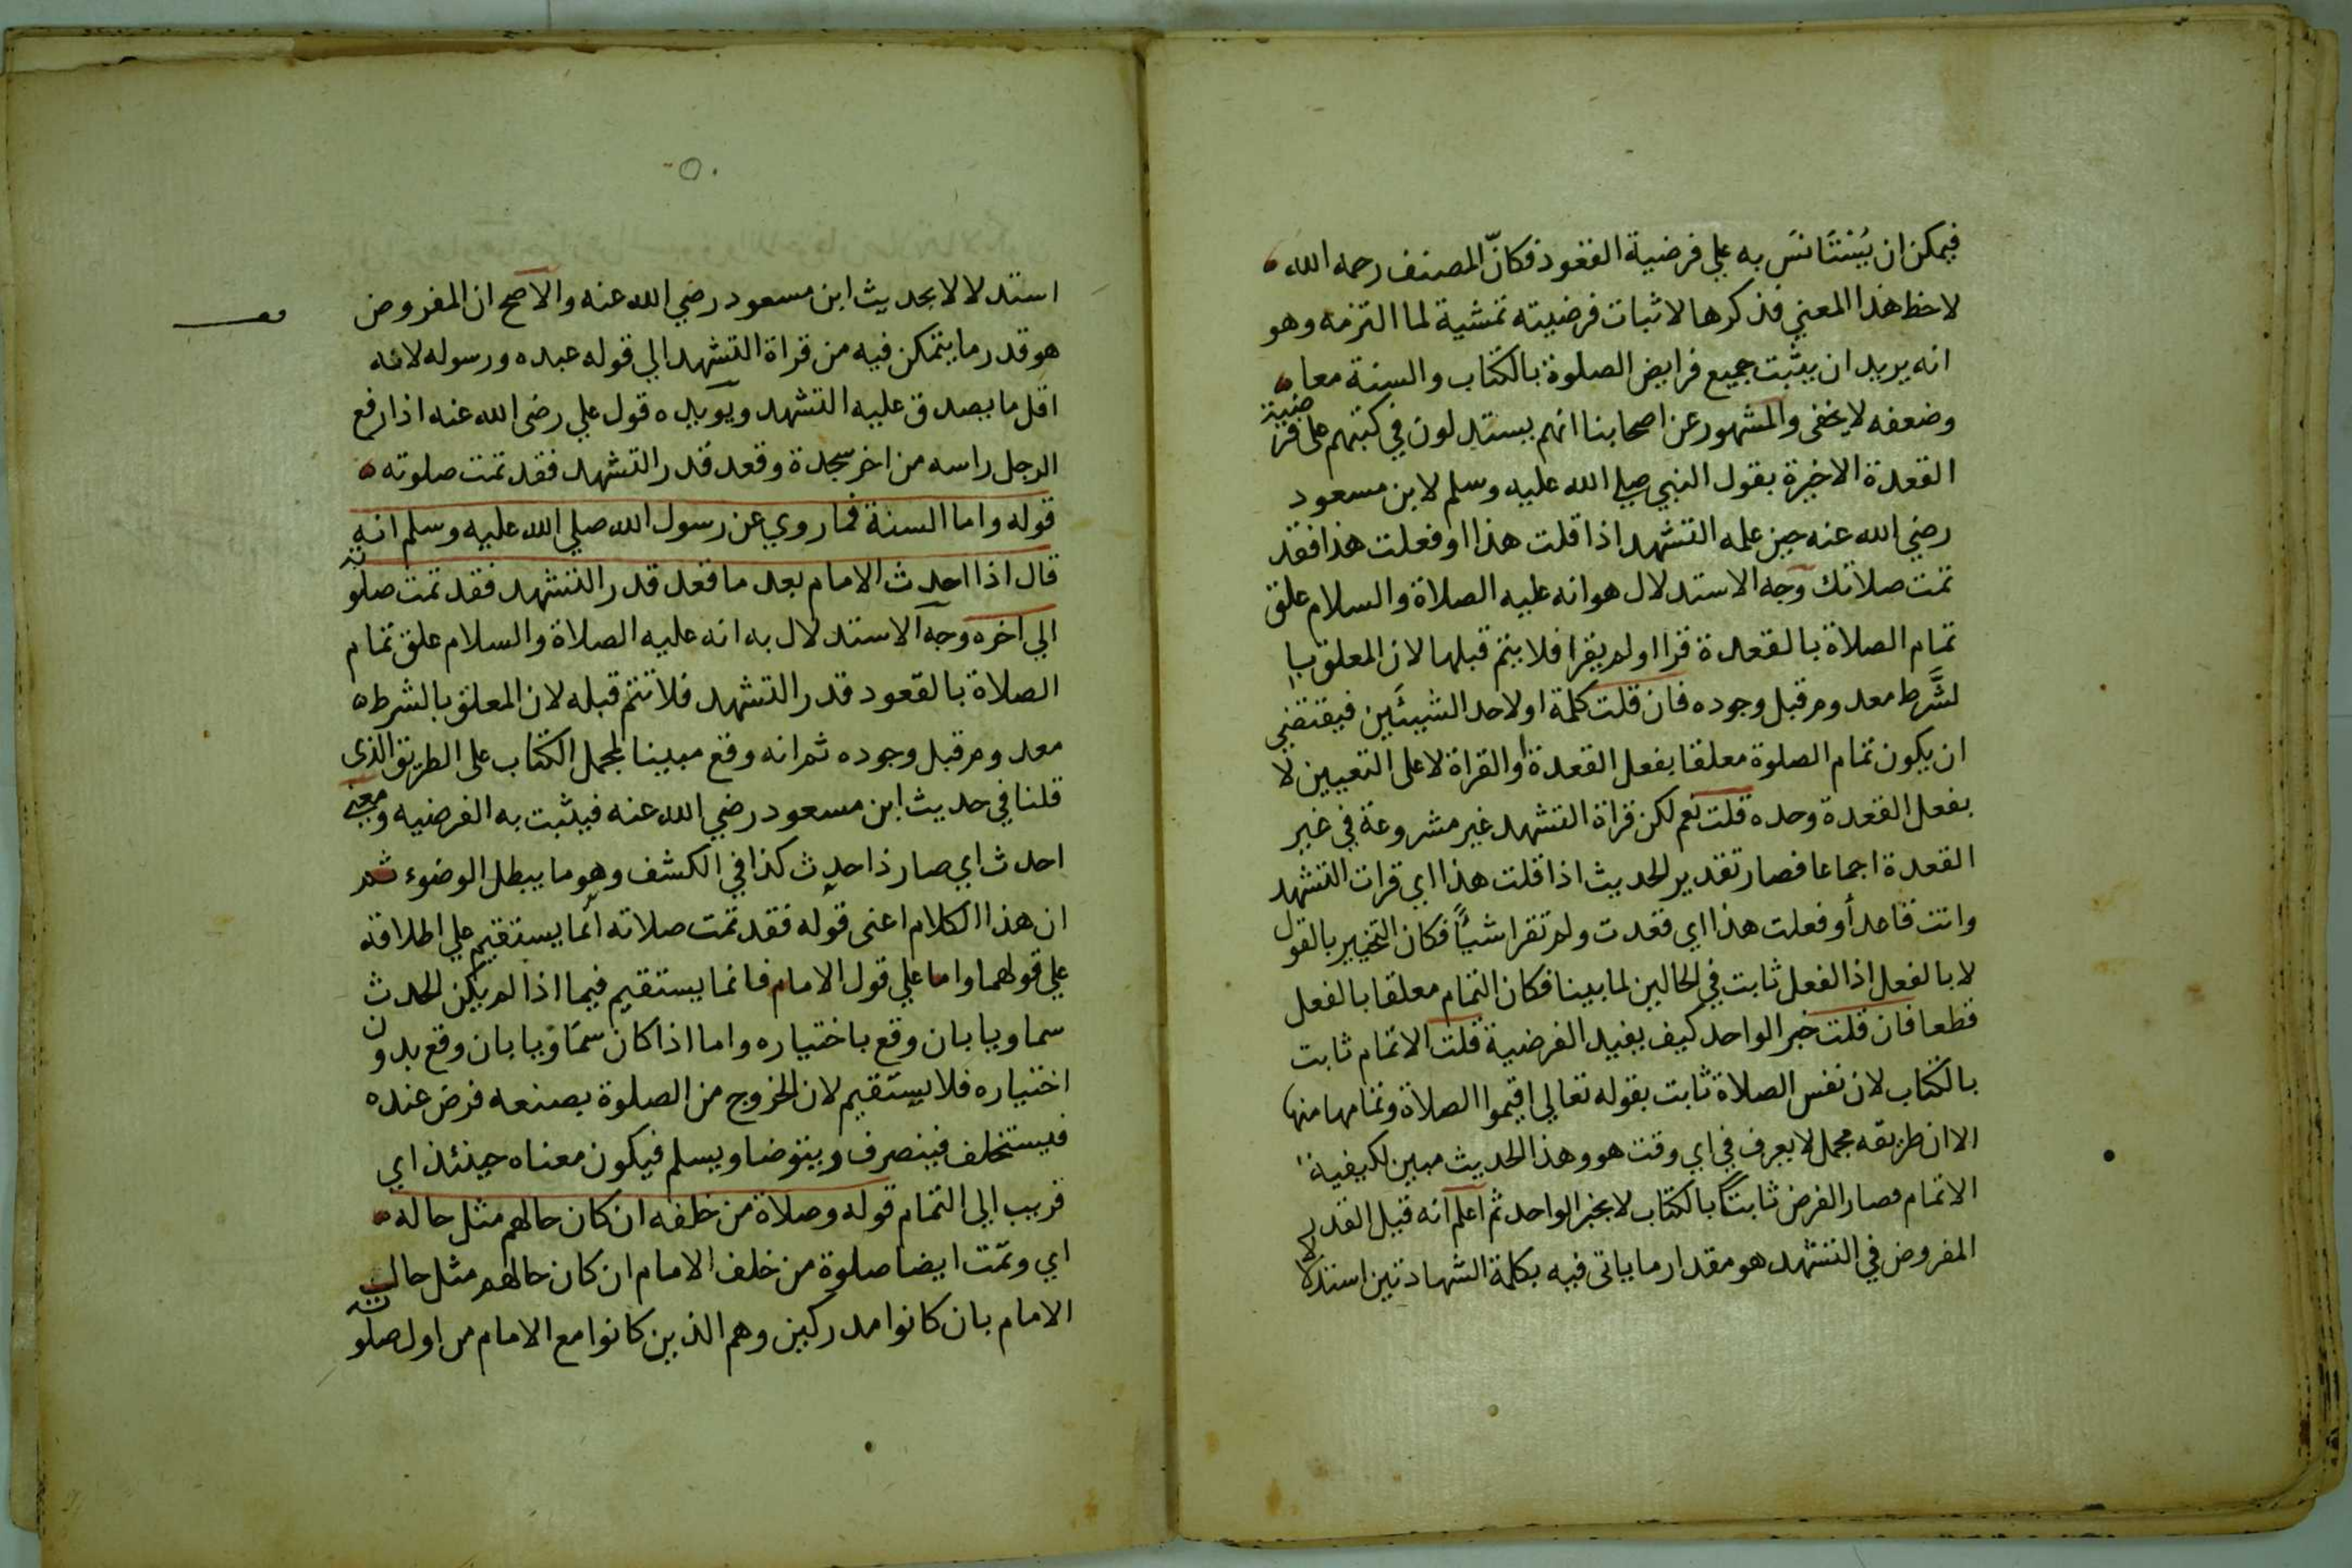 فيمكن ان يُسْتَانسَ به علي فرضية القعود فكانّ المصنف رحمه الله
لاحظ هذا المعني فذكرها لاثبات فرضيته تمشية لما التزمه وهو
انه يريد ان يثبت جميع فرايض الصلوة بالكتاب والسنة معا
وضعفه لا يخفى والمشهور عن اصحابنا انهم يستدلون في كتبهم على فرضية
القعدة الاخيرة بقول النبي صلي الله عليه وسلم لابن مسعود
رضي الله عنه حين علمه التشهد اذا قلت هذا او فعلت هذا فقد
تمت صلاتك وجه الاستدلال هو انه عليه الصلاة والسلام علق
تمام الصلاة بالقعدة قرا او لم يقرا فلا يتم قبلها لان المعلق با
لشَّرط معدوم قبل وجوده فان قلت كلمة او لاحد الشيئَين فيقتضي
ان يكون تمام الصلوة معلقا بفعل القعدة او القراة لا على التعيين لا
بفعل القعدة وحده قلت نعم لكن قراة التشهد غير مشروعة في غير
القعدة اجماعا فصار تقدير الحديث اذا قلت هذا اي قرات التشهد
وانت قاعد أو فعلت هذا اي قعدت ولم تقرا شيًا فكان التخيير بالقول
لا بالفعل اذ الفعل ثابت في الحالين لما بينا فكان التمام معلقا بالفعل
قطعا فان قلت خبر الواحد كيف يفيد الفرضية قلت الاتمام ثابت
بالكتاب لان نفس الصلاة ثابت بقوله تعالي اقيموا الصلاة وتمامها منها
الا ان طريقه مجمل لا يعرف في اي وقت هو وهذا الحديث مبين لكيفية
الاتمام فصار الفرض ثابتًا بالكتاب لا بخبر الواحد ثم اعلم انه قيل القدر
المفروض في التشهد هو مقدار ما ياتى فيه بكلمة الشهادتين استدلا لا
٥٠
استدلالا بحديث ابن مسعود رضي الله عنه والاصح ان المفروض
هو قدر ما يتمكن فيه من قراة التشهد الي قوله عبده ورسوله لانه
اقل ما يصدق عليه التشهد ويويده قول علي رضى الله عنه اذا رفع
الرجل راسه من اخر سجدة وقعد قدر التشهد فقد تمت صلوته
قوله واما السنة فما روي عن رسول الله صلي الله عليه وسلم انه
قال اذا احدث الامام بعد ما قعد قدر التشهد فقد تمت صلوته
الي اخره وجه الاستدلال به انه عليه الصلاة والسلام علق تمام
الصلاة بالقعود قدر التشهد فلا تتم قبله لان المعلق بالشرط
معدوم قبل وجوده ثم انه وقع مبينا لمجمل الكتاب على الطريق الذى
قلنا في حديث ابن مسعود رضي الله عنه فيثبت به الفرضيه ومعنى
احدث اي صار ذا حدث كذا في الكشف وهو ما يبطل الوضوء ثم
ان هذا الكلام اعنى قوله فقد تمت صلاته انّما يستقيم علي اطلاقه
علي قولهما واما علي قول الامام فانما يستقيم فيما اذا لم يكن الحدث
سماويا بان وقع باختياره واما اذا كان سمَاوَيا بان وقع بدون
اختياره فلا يستقيم لان الخروج من الصلوة بصنعه فرض عنده
فيستخلف فينصرف ويتوضا ويسلم فيكون معناه حينئذ اي
قريب الي التمام قوله وصلاة من خلفه ان كان حالهم مثل حاله
اي وتمّت ايضا صلوة من خلف الامام ان كان حالهم مثل حال
الامام بان كانوا مدركين وهم الذين كانوا مع الامام من اول صلوته